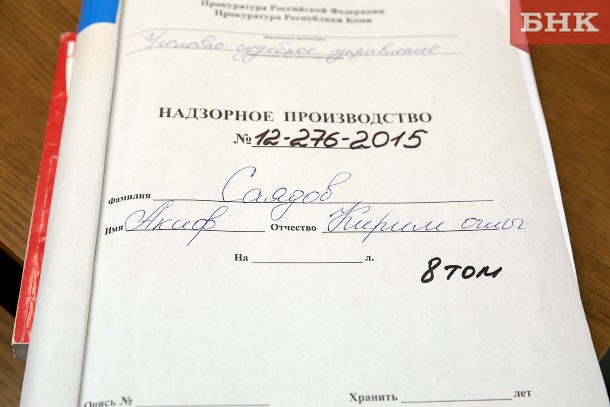 БНК
Прокуратура Российской Федерации
Прокуратура Республики Коми
Уголовно-судебное управление
НАДЗОРНОЕ ПРОИЗВОДСТВО
№ 12-276-2015
Фамилия Саядов
Имя Акиф Отчество Кирим оглы
На ___ л.
8 том
Опись № ___ Хранить ___ лет